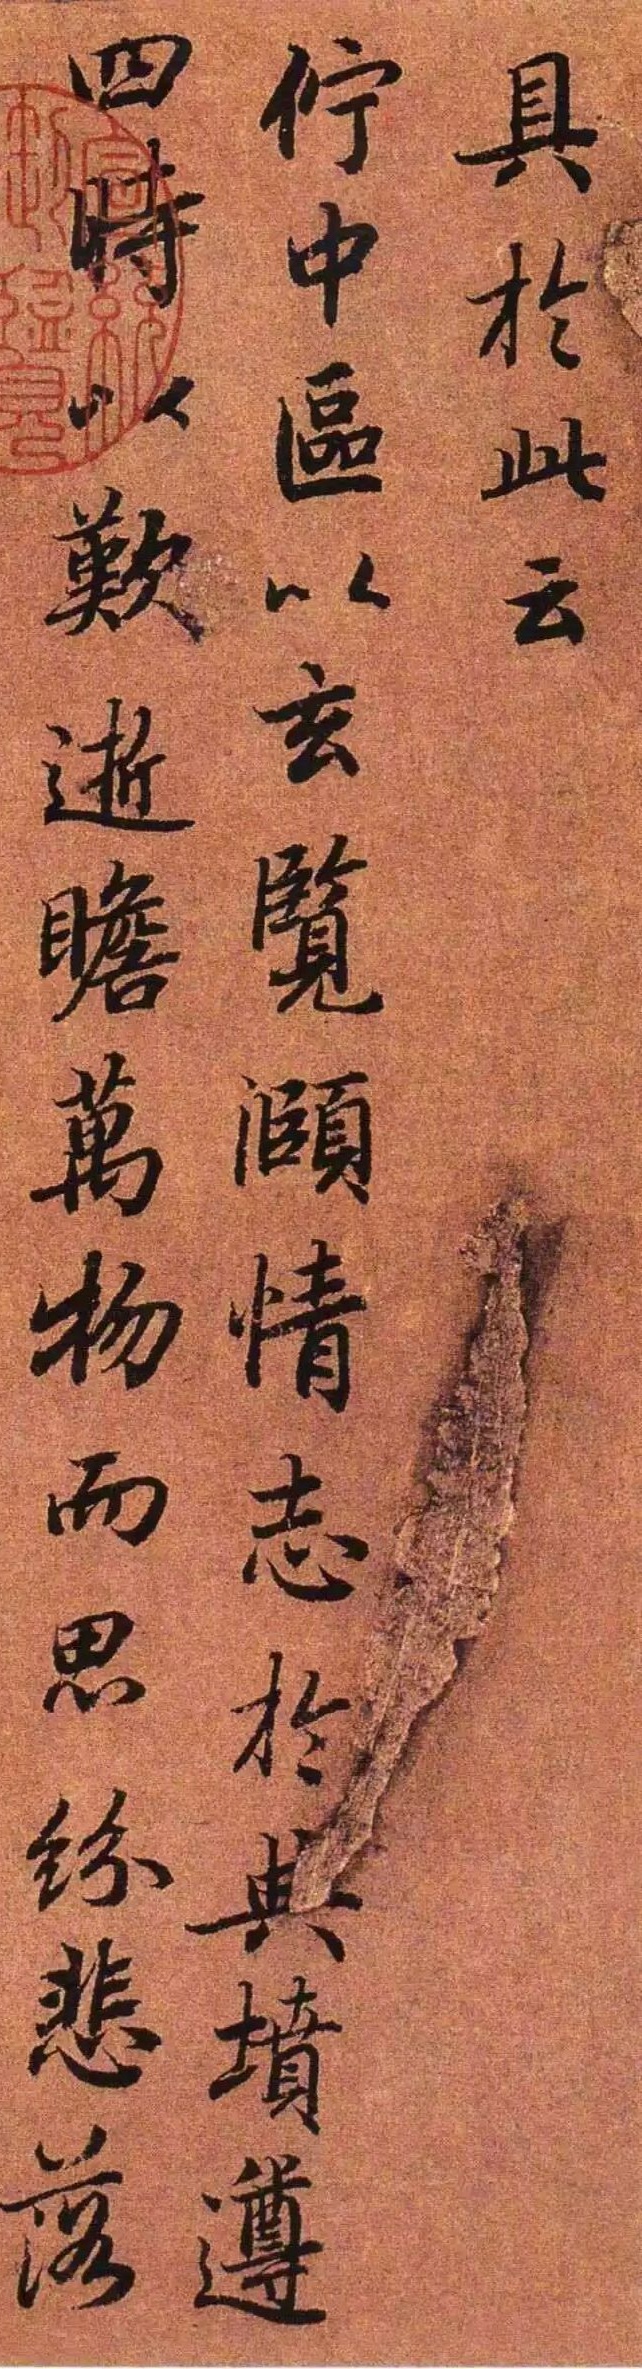 具於此云
佇中區以玄覽頤情志於典墳遵
四時以歎逝瞻萬物而思紛悲落